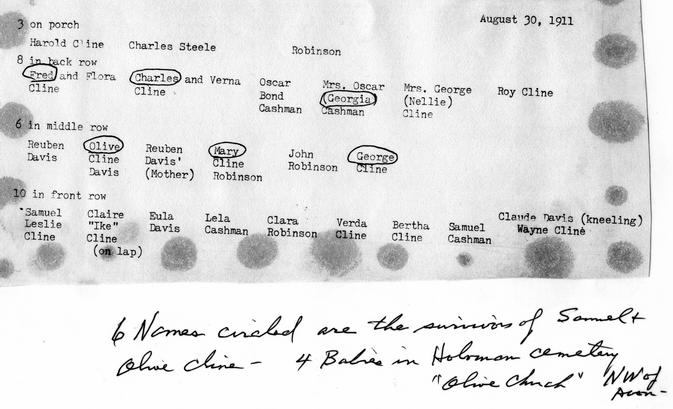 3 on porch
August 30, 1911
Harold Cline Charles Steele Robinson
8 in back row
Fred and Flora Cline
Charles and Verna Cline
Oscar Bond Cashman
Mrs. Oscar (Georgia) Cashman
Mrs. George (Nellie) Cline
Roy Cline
6 in middle row
Reuben Davis
Olive Cline Davis
Reuben Davis' (Mother)
Mary Cline Robinson
John Robinson
George Cline
10 in front row
Samuel Leslie Cline
Claire "Ike" Cline (on lap)
Eula Davis
Lela Cashman
Clara Robinson
Verda Cline
Bertha Cline
Samuel Cashman
Claude Davis (kneeling)
Wayne Cline
6 Names circled are the survivors of Samuel +
Olive Cline - 4 Babies in cemetery
"Olive Church" NW of